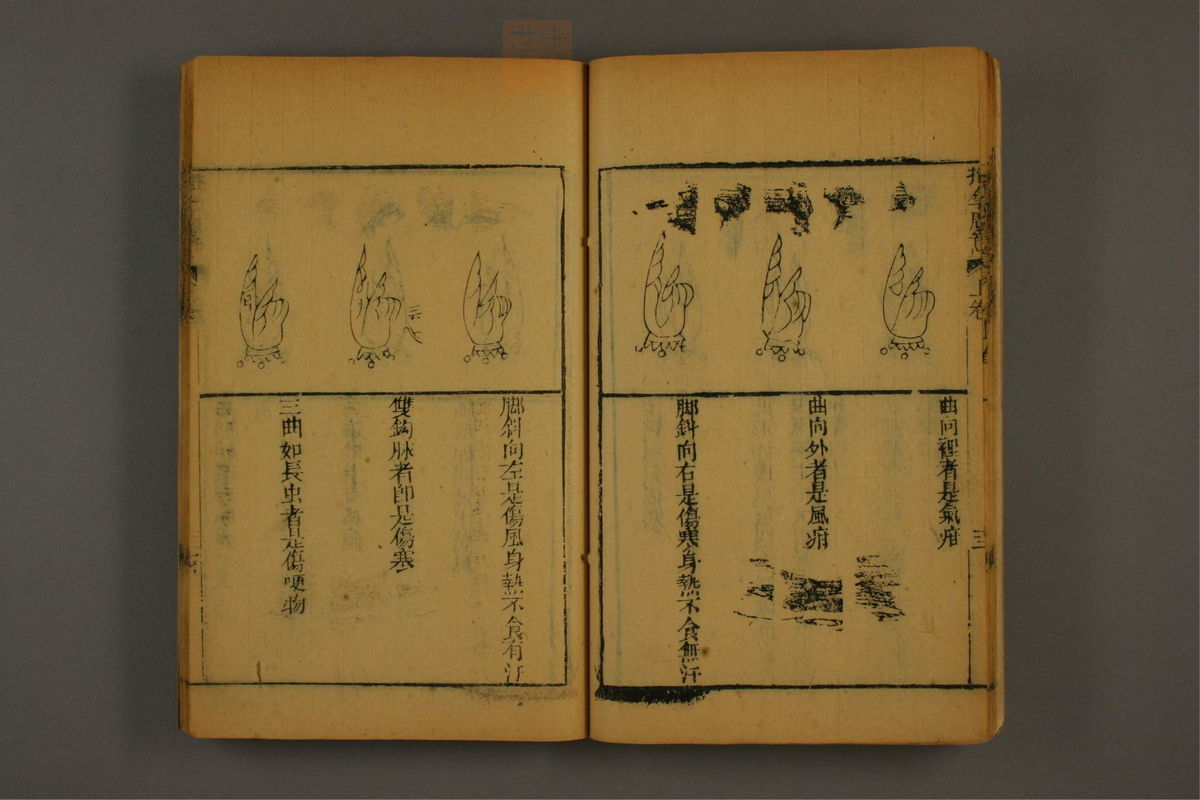 曲向裡者是氣疳
曲向外者是風疳
脚斜向右是傷寒身熱不食無汗
三
脚斜向左是傷風身熱不食有汗
雙鈎脉者即是傷寒
三曲如長虫者是傷哽物